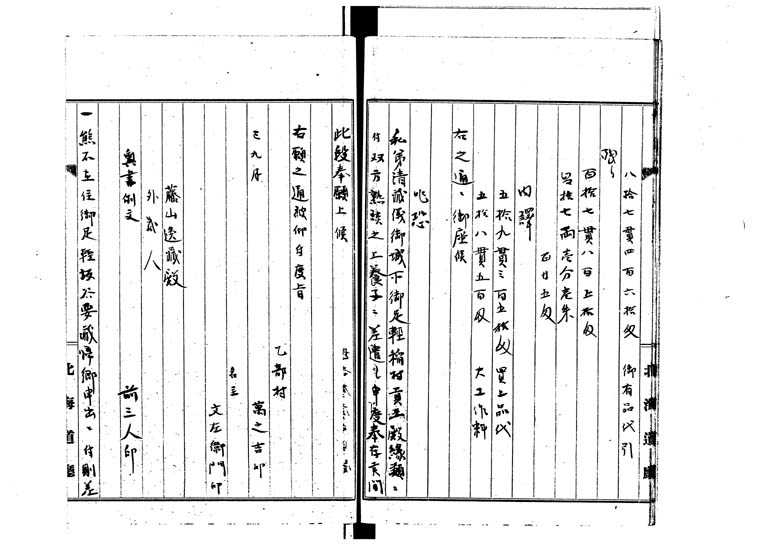 八拾七貫四百六拾匁　御有品代引
残り
百拾七貫八百五拾匁
〆拾七両壱分壱朱
百廿五匁
内譯
五拾九貫三百五拾匁　買上品代
五拾八貫五百匁　大工作料
右之通ニ御座候
乍恐
私弟清蔵儀御城下御足軽稲村貢殿縁類ニ
付双方熟談之上養子ニ差遣シ申度奉存候間
此段奉願上候
右願之通被仰付度旨
乙部村
三九月
萬之吉印
名主
文左衛門印
藤山逸蔵殿
外貳人
奥書例文
前三人印
一熊石在住御足軽坂下要蔵帰郷申出ニ付則差
北海道廳
北海道廳